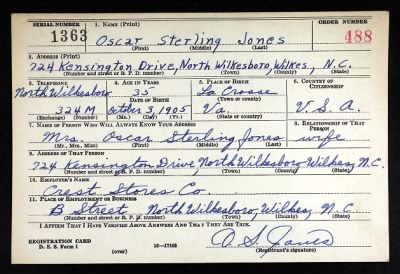 SERIAL NUMBER 1. NAME (Print) ORDER NUMBER
1363 Oscar Sterling Jones 488
(First) (Middle) (Last)
2. ADDRESS (Print)
724 Kensington Drive, North Wilkesboro, Wilkes, N.C.
(Number and street or R. F. D. number) (Town) (County) (State)
3. TELEPHONE 4. AGE IN YEARS 5. PLACE OF BIRTH 6. COUNTRY OF CITIZENSHIP
North Wilkesboro 35 La Crosse
DATE OF BIRTH (Town or county)
324M October 3, 1905 Va. U.S.A.
(Exchange) (Number) (Mo.) (Day) (Yr.) (State or country)
7. NAME OF PERSON WHO WILL ALWAYS KNOW YOUR ADDRESS 8. RELATIONSHIP OF THAT PERSON
Mrs. Oscar Sterling Jones wife
(Mr., Mrs., Miss) (First) (Middle) (Last)
9. ADDRESS OF THAT PERSON
724 Kensington Drive North Wilkesboro Wilkes, N.C.
(Number and street or R. F. D. number) (Town) (County) (State)
10. EMPLOYER'S NAME
Crest Stores Co.
11. PLACE OF EMPLOYMENT OR BUSINESS
B Street, North Wilkesboro, Wilkes, N.C.
(Number and street or R. F. D. number) (Town) (County) (State)
I AFFIRM THAT I HAVE VERIFIED ABOVE ANSWERS AND THAT THEY ARE TRUE.
O. S. Jones
REGISTRATION CARD
D. S. S. Form 1 (over) 16—17105 (Registrant's signature)